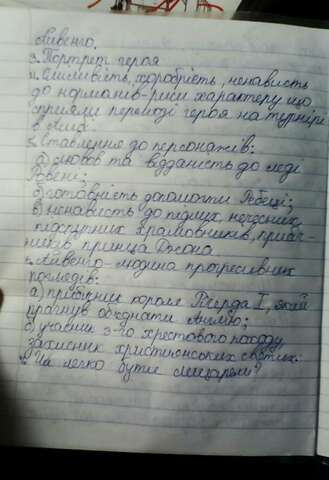 Айвенго.
3. Портрет героя
4. Сміливість, хоробрість, ненависть
до норманів-риси характеру що
сприяли перемозі героя на турнірі
в
5. Ставлення до персонажів:
а) любов та відданість до леді
Ровені;
б) готовність допомогти Ребеці;
в) ненависть до підлих, нечесних,
підступних храмовників, прибіч-
ників принца Джона
6. Айвенго-людина прогресивних
поглядів:
а) прибічник короля Річарда І, який
прагнув обєднати Англію;
б) учасник 3-го хрестового походу,
захисник християнських святинь.
Чи легко бути лицарем?